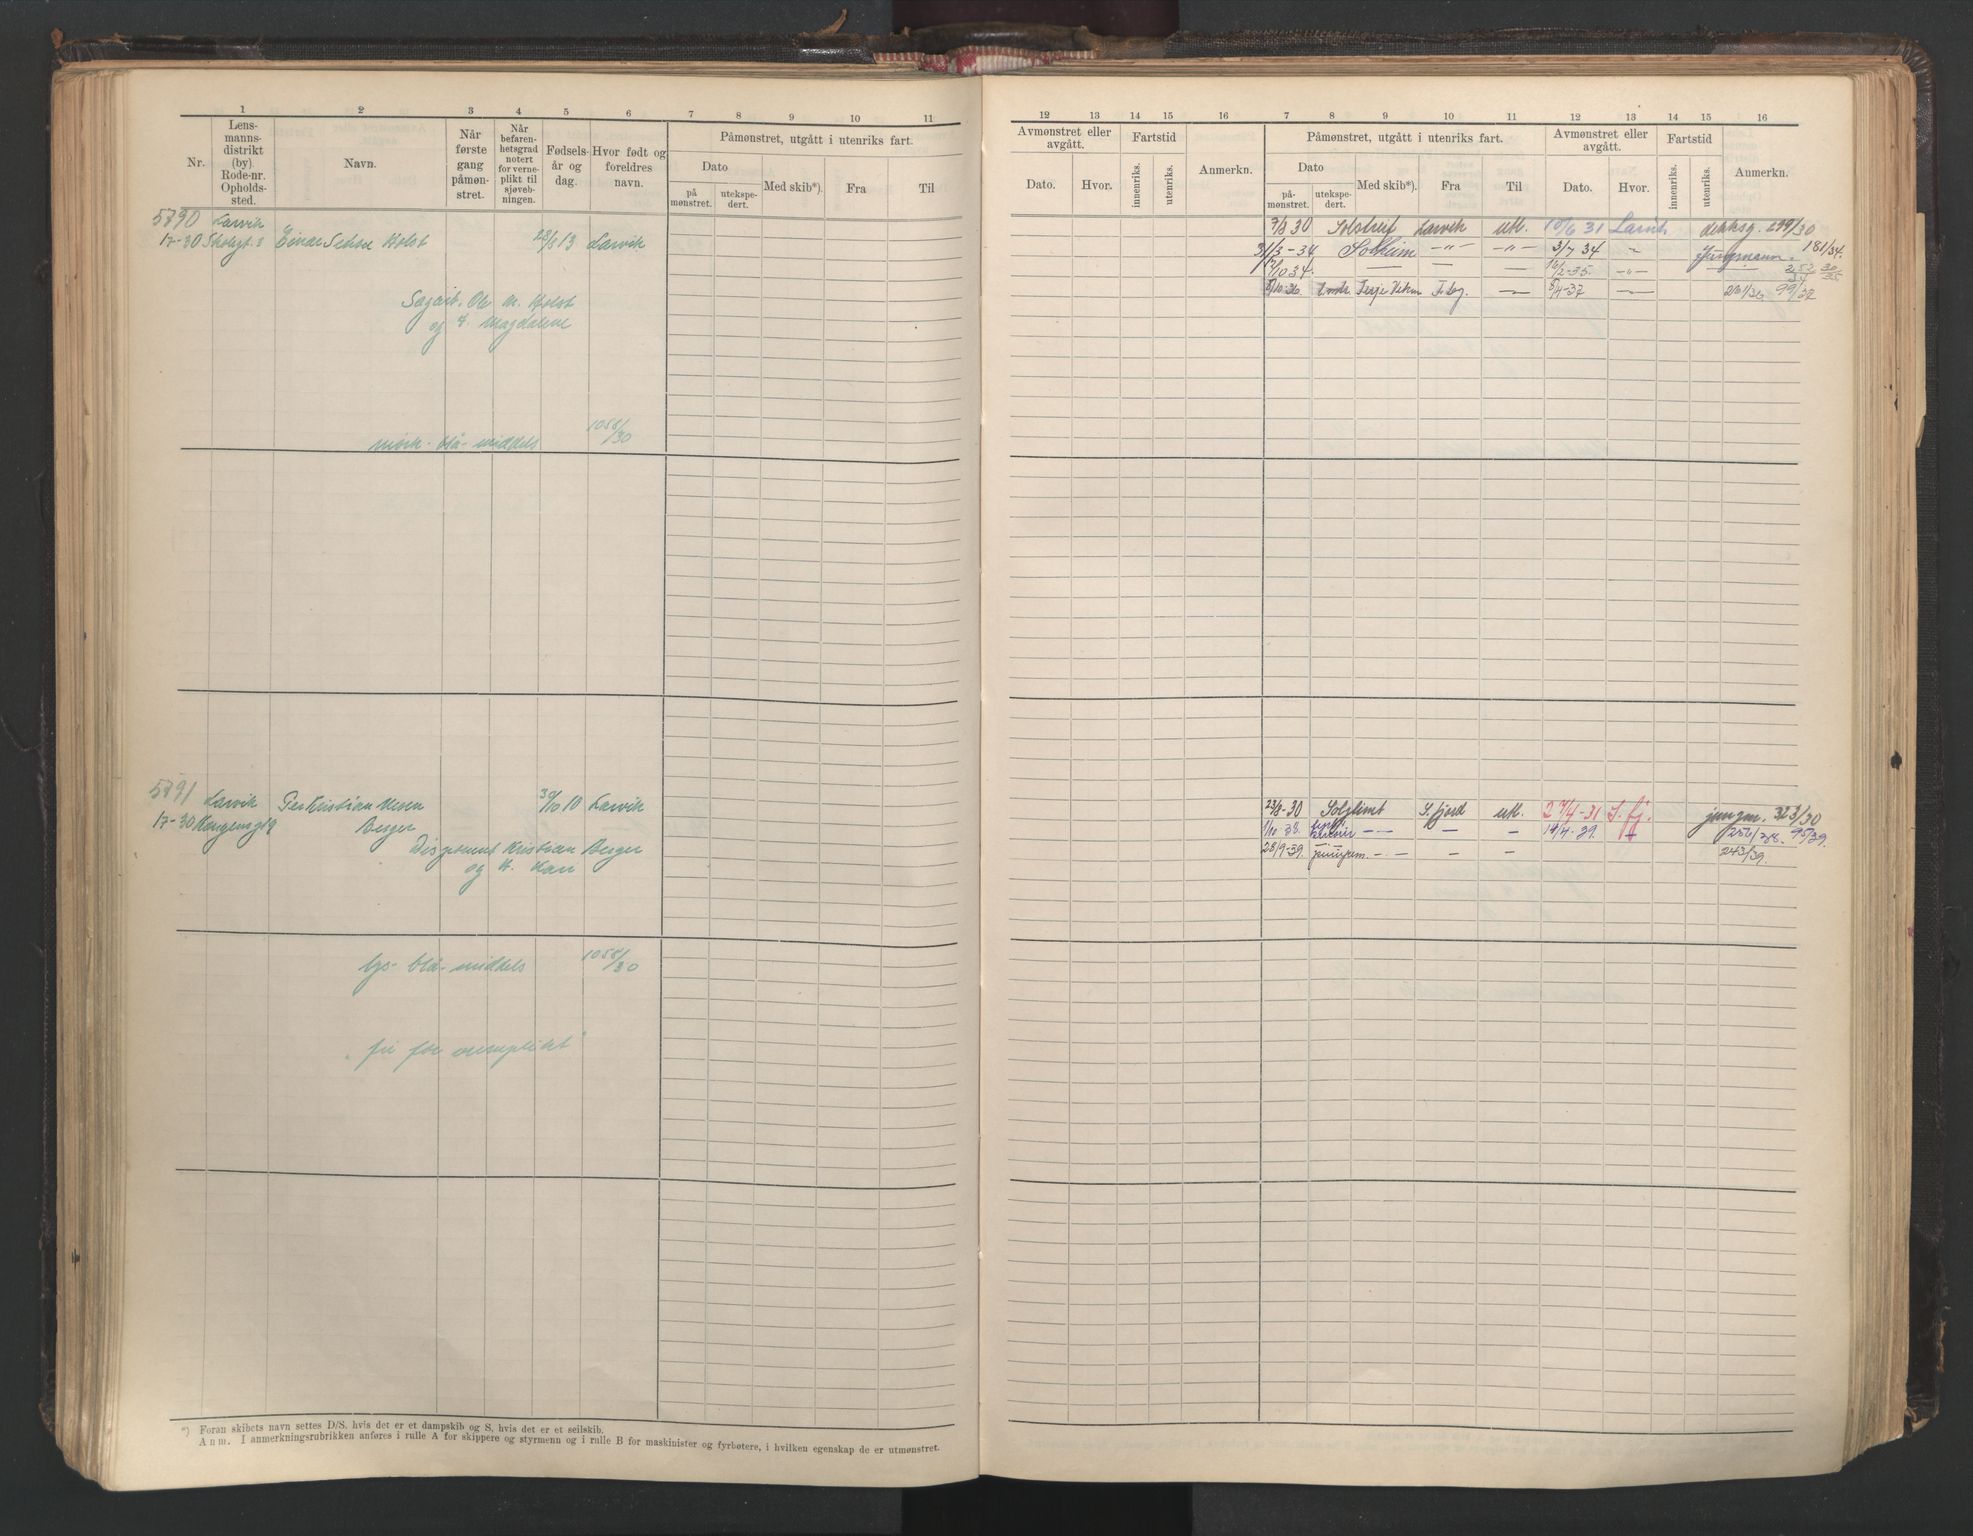 1 2 3 4 5 6 7 8 9 10 11
Nr.
Lens-
manns-
distrikt
(by).
Rode-nr.
Opholds-
sted.
Navn.
Når
første
gang
påmøn-
stret.
Når
befaren-
hetsgrad
notert
for verne-
plikt til
sjøveb-
ningen.
Fødsels-
år og
dag.
Hvor født og
foreldres
navn.
Påmønstret, utgått i utenriks fart.
Dato
på
mønstret.
utekspe-
dert.
Med skib*).
Fra
Til
5790 Larvik
17-30 Einar Holst 13 Larvik
Ole M. Holst
og Magdalene
mørk- blå- middels 1058/30
5791 Larvik
17-30 Kongensgt 9 Per Kristian Berger 30/10 10 Larvik
Disponent Kristian Berger
og H. Kari
lys- blå- middels 1058/30
" fri for verneplikt "
*) Foran skibets navn settes D/S, hvis det er et dampskib og S, hvis det er et seilskib.
Anm. I anmerkningsrubrikken anføres i rulle A for skippere og styrmenn og i rulle B for maskinister og fyrbøtere, i hvilken egenskap de er utmønstret.
12 13 14 15 16 7 8 9 10 11 12 13 14 15 16
Avmønstret eller
avgått.
Dato.
Hvor.
Fartstid
innenriks.
utenriks.
Anmerkn.
Påmønstret, utgått i utenriks fart.
Dato
på
mønstret.
utekspe-
dert.
Med skib*).
Fra
Til
Avmønstret eller
avgått.
Dato.
Hvor.
Fartstid
innenriks.
utenriks.
Anmerkn.
7/8 30 Solstreif Larvik utl. 10/6 31 Larvik dekksg. 299/30
31/3-34 Solheim -"- -"- 3/7 34 " Jungmann. 181/34.
10 34. — 2-35. -"- — 252/34 30/35
8/10 36. Terje Viken T.bg. — 8/4-37 — 261/36 99/37
23/8-30 Solglimt S.fjord utl. 27/4-31 S.fj. jungm. 323/30
1/10 38. — — — 14/4-39. 256/38. 95/39.
28/9-39. — — — 243/39.